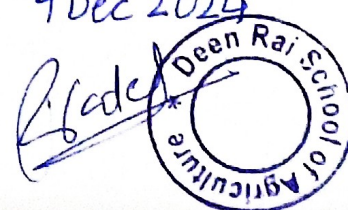 9 Dec 2024
Deen Rai School of Agriculture *